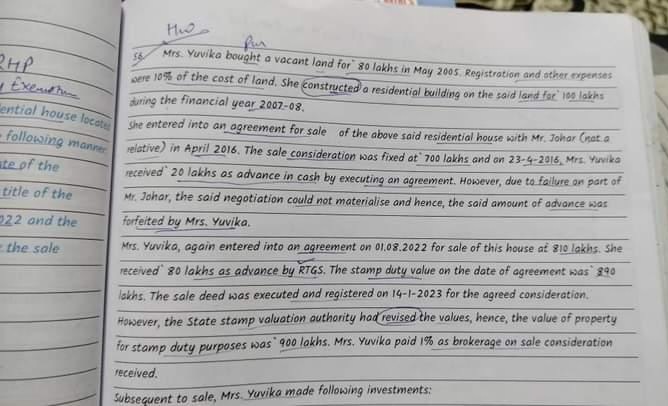 HW
Pur
RHP
Exemption
ential house located
following manner
te of the
title of the
022 and the
the sale
56 Mrs. Yuvika bought a vacant land for ` 80 lakhs in May 2005. Registration and other expenses
were 10% of the cost of land. She constructed a residential building on the said land for ` 100 lakhs
during the financial year 2007-08.
She entered into an agreement for sale of the above said residential house with Mr. Johar (not a
relative) in April 2016. The sale consideration was fixed at ` 700 lakhs and on 23-4-2016, Mrs. Yuvika
received ` 20 lakhs as advance in cash by executing an agreement. However, due to failure on part of
Mr. Johar, the said negotiation could not materialise and hence, the said amount of advance was
forfeited by Mrs. Yuvika.
Mrs. Yuvika, again entered into an agreement on 01.08.2022 for sale of this house at ` 810 lakhs. She
received ` 80 lakhs as advance by RTGS. The stamp duty value on the date of agreement was ` 890
lakhs. The sale deed was executed and registered on 14-1-2023 for the agreed consideration.
However, the State stamp valuation authority had revised the values, hence, the value of property
for stamp duty purposes was ` 900 lakhs. Mrs. Yuvika paid 1% as brokerage on sale consideration
received.
Subsequent to sale, Mrs. Yuvika made following investments: